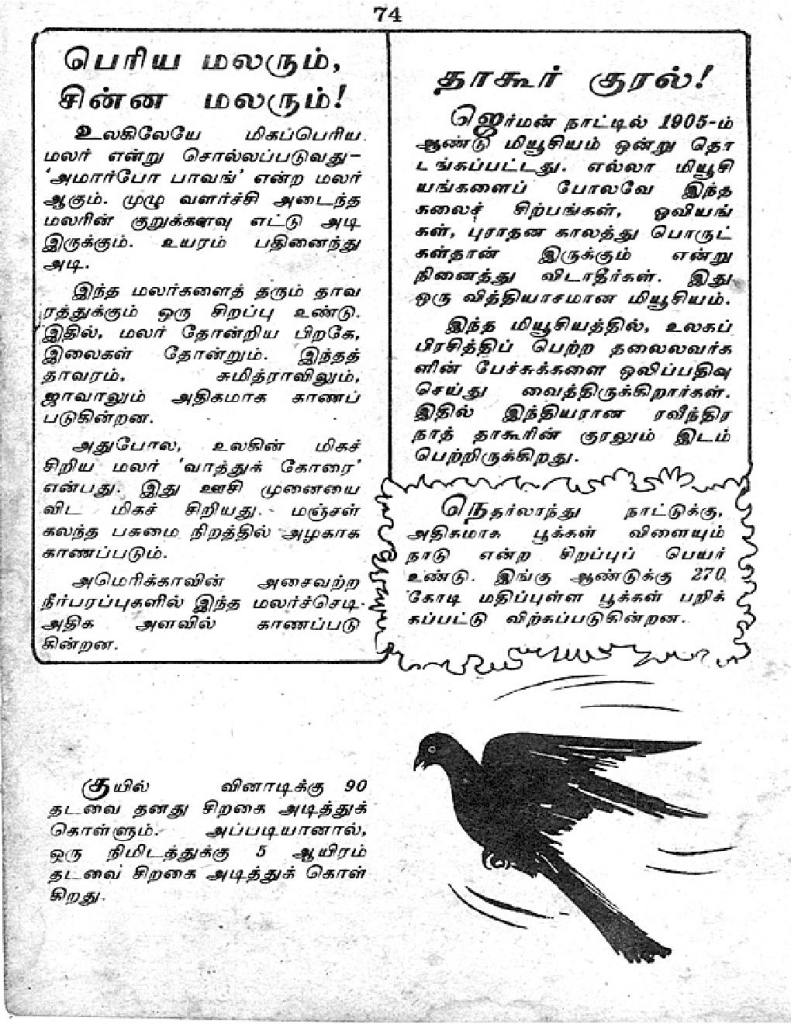 74
பெரிய மலரும்,
சின்ன மலரும்!
உலகிலேயே மிகப்பெரிய
மலர் என்று சொல்லப்படுவது–
‘அமார்போ பாவங்’ என்ற மலர்
ஆகும். முழு வளர்ச்சி அடைந்த
மலரின் குறுக்களவு எட்டு அடி
இருக்கும். உயரம் பதினைந்து
அடி.
இந்த மலர்களைத் தரும் தாவ
ரத்துக்கும் ஒரு சிறப்பு உண்டு.
இதில், மலர் தோன்றிய பிறகே,
இலைகள் தோன்றும். இந்தத்
தாவரம், சுமித்ராவிலும்,
ஜாவாலும் அதிகமாக காணப்
படுகின்றன.
அதுபோல, உலகின் மிகச்
சிறிய மலர் ‘வாத்துக் கோரை’
என்பது. இது ஊசி முனையை
விட மிகச் சிறியது. மஞ்சள்
கலந்த பசுமை நிறத்தில் அழகாக
காணப்படும்.
அமெரிக்காவின் அசைவற்ற
நீர்பரப்புகளில் இந்த மலர்ச்செடி
அதிக அளவில் காணப்படு
கின்றன.
தாகூர் குரல்!
ஜெர்மன் நாட்டில் 1905-ம்
ஆண்டு மியூசியம் ஒன்று தொ
டங்கப்பட்டது. எல்லா மியூசி
யங்களைப் போலவே இந்த
கலைச் சிற்பங்கள், ஓவியங்
கள், புராதன காலத்து பொருட்
கள்தான் இருக்கும் என்று
நினைத்து விடாதீர்கள். இது
ஒரு வித்தியாசமான மியூசியம்.
இந்த மியூசியத்தில், உலகப்
பிரசித்திப் பெற்ற தலைலவர்க
ளின் பேச்சுக்களை ஒலிப்பதிவு
செய்து வைத்திருக்கிறார்கள்.
இதில் இந்தியரான ரவீந்திர
நாத் தாகூரின் குரலும் இடம்
பெற்றிருக்கிறது.
நெதர்லாந்து நாட்டுக்கு,
அதிகமாக பூக்கள் விளையும்
நாடு என்ற சிறப்புப் பெயர்
உண்டு. இங்கு ஆண்டுக்கு 270
கோடி மதிப்புள்ள பூக்கள் பறிக்
கப்பட்டு விற்கப்படுகின்றன.
குயில் வினாடிக்கு 90
தடவை தனது சிறகை அடித்துக்
கொள்ளும். அப்படியானால்,
ஒரு நிமிடத்துக்கு 5 ஆயிரம்
தடவை சிறகை அடித்துக் கொள்
கிறது.